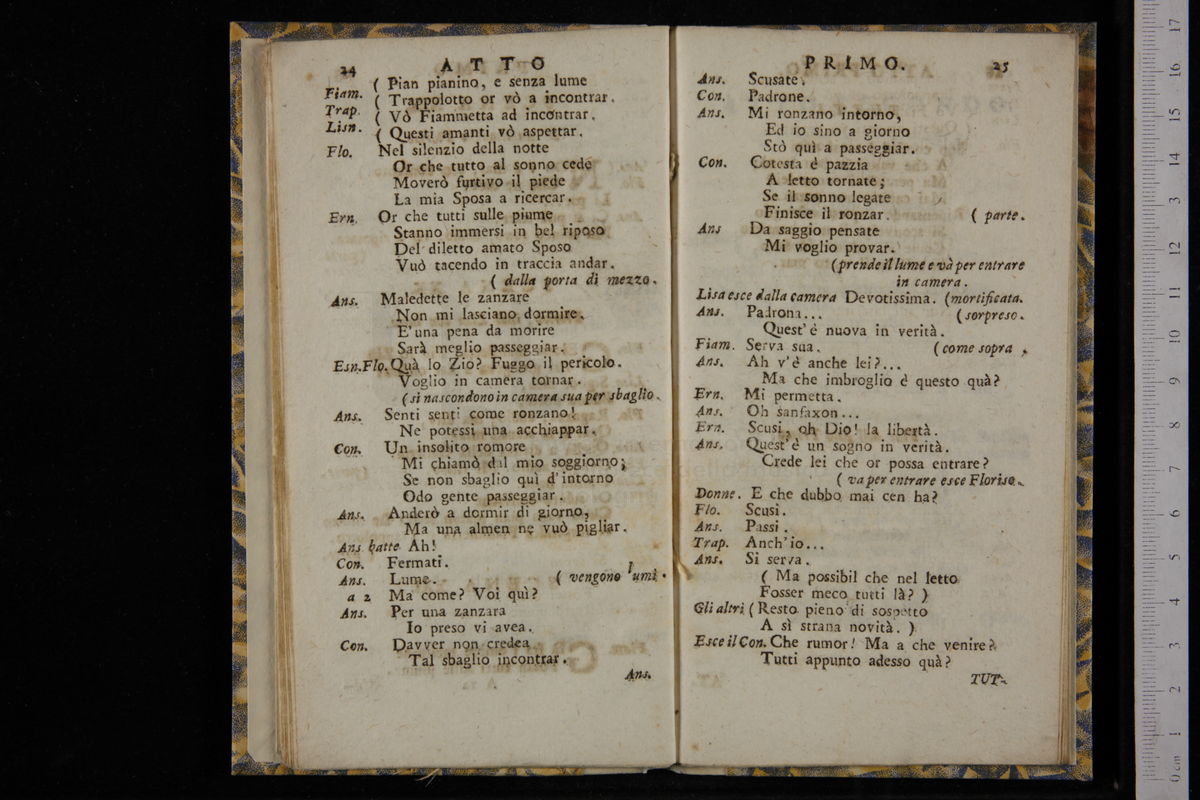 24 ATTO
( Pian pianino, e senza lume
Fiam. ( Trappolotto or vò a incontrar.
Trap. ( Vò Fiammetta ad incontrar.
Lisn. ( Questi amanti vò aspettar.
Flo. Nel silenzio della notte
Or che tutto al sonno cede
Moverò furtivo il piede
La mia Sposa a ricercar.
Ern. Or che tutti sulle piume
Stanno immersi in bel riposo
Del diletto amato Sposo
Vuò tacendo in traccia andar.
( dalla porta di mezzo.
Ans. Maledette le zanzare
Non mi lasciano dormire.
E' una pena da morire
Sarà meglio passeggiar.
Esn.Flo. Quà lo Zio? Fuggo il pericolo.
Voglio in camera tornar.
( si nascondono in camera sua per sbaglio.
Ans. Senti senti come ronzano!
Ne potessi una acchiappar.
Con. Un insolito romore
Mi chiamò dal mio soggiorno;
Se non sbaglio quì d'intorno
Odo gente passeggiar.
Ans. Anderò a dormir di giorno,
Ma una almen ne vuò pigliar.
Ans batte Ah!
Con. Fermati.
Ans. Lume. ( vengono lumi.
a 2 Ma come? Voi quì?
Ans. Per una zanzara
Io preso vi avea.
Con. Davver non credea
Tal sbaglio incontrar.
Ans.
PRIMO. 25
Ans. Scusate.
Con. Padrone.
Ans. Mi ronzano intorno,
Ed io sino a giorno
Stò quì a passeggiar.
Con. Cotesta è pazzia
A letto tornate;
Se il sonno legate
Finisce il ronzar. ( parte.
Ans Da saggio pensate
Mi voglio provar.
(prende il lume e và per entrare
in camera.
Lisa esce dalla camera Devotissima. (mortificata.
Ans. Padrona... (sorpreso.
Quest'è nuova in verità.
Fiam. Serva sua. (come sopra.
Ans. Ah v'è anche lei?...
Ma che imbroglio è questo quà?
Ern. Mi permetta.
Ans. Oh sanfaxon...
Ern. Scusi, oh Dio! la libertà.
Ans. Quest'è un sogno in verità.
Crede lei che or possa entrare?
( va per entrare esce Floriso.
Donne. E che dubbo mai cen ha?
Flo. Scusi.
Ans. Passi.
Trap. Anch'io...
Ans. Si serva.
( Ma possibil che nel letto
Fosser meco tutti là? )
Gli altri ( Resto pieno di sospetto
A sì strana novità. )
Esce il Con. Che rumor! Ma a che venire?
Tutti appunto adesso quà?
TUT-
0 cm 1 2 3 4 5 6 7 8 9 10 11 12 13 14 15 16 17